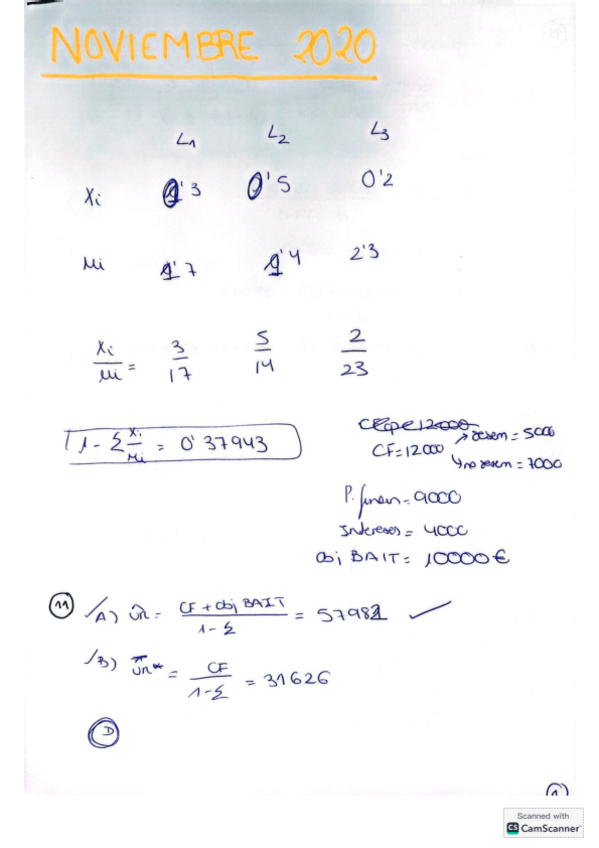 NOVIEMBRE 2020
L1 L2 L3
Xi 0'3 0'5 0'2
Mi 1'7 1'4 2'3
Xi/Mi = 3/17 5/14 2/23
1 - Σ Xi/Mi = 0'37943
CF=12000 → desem = 5000
↳ no desem = 7000
P. finan = 9000
Intereses = 4000
Obj BAIT = 10000€
11 A) Ûn = CF + Obj BAIT / 1 - Σ = 57982 ✓
B) Ûn* = CF / 1 - Σ = 31626
D
Scanned with
CS CamScanner